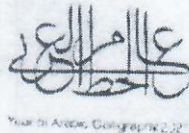 عام الخط العربي
Year of Arabic Calligraphy 2020